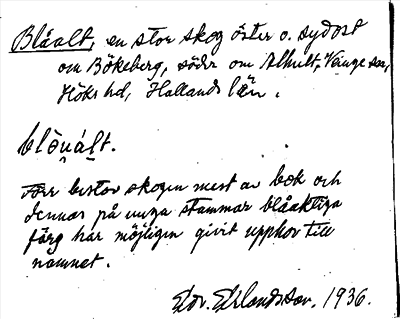 Blåalt, en stor skog öster o. sydost
om Bökeberg, söder om Alhult, Veinge sn,
Höks hd, Hallands län.
blō̯nált.
Förr bestov skogen mest av bok och
dennas på unga stammar blåaktiga
färg har möjligen givit upphov till
namnet.
Edv. Erlandsson. 1936.